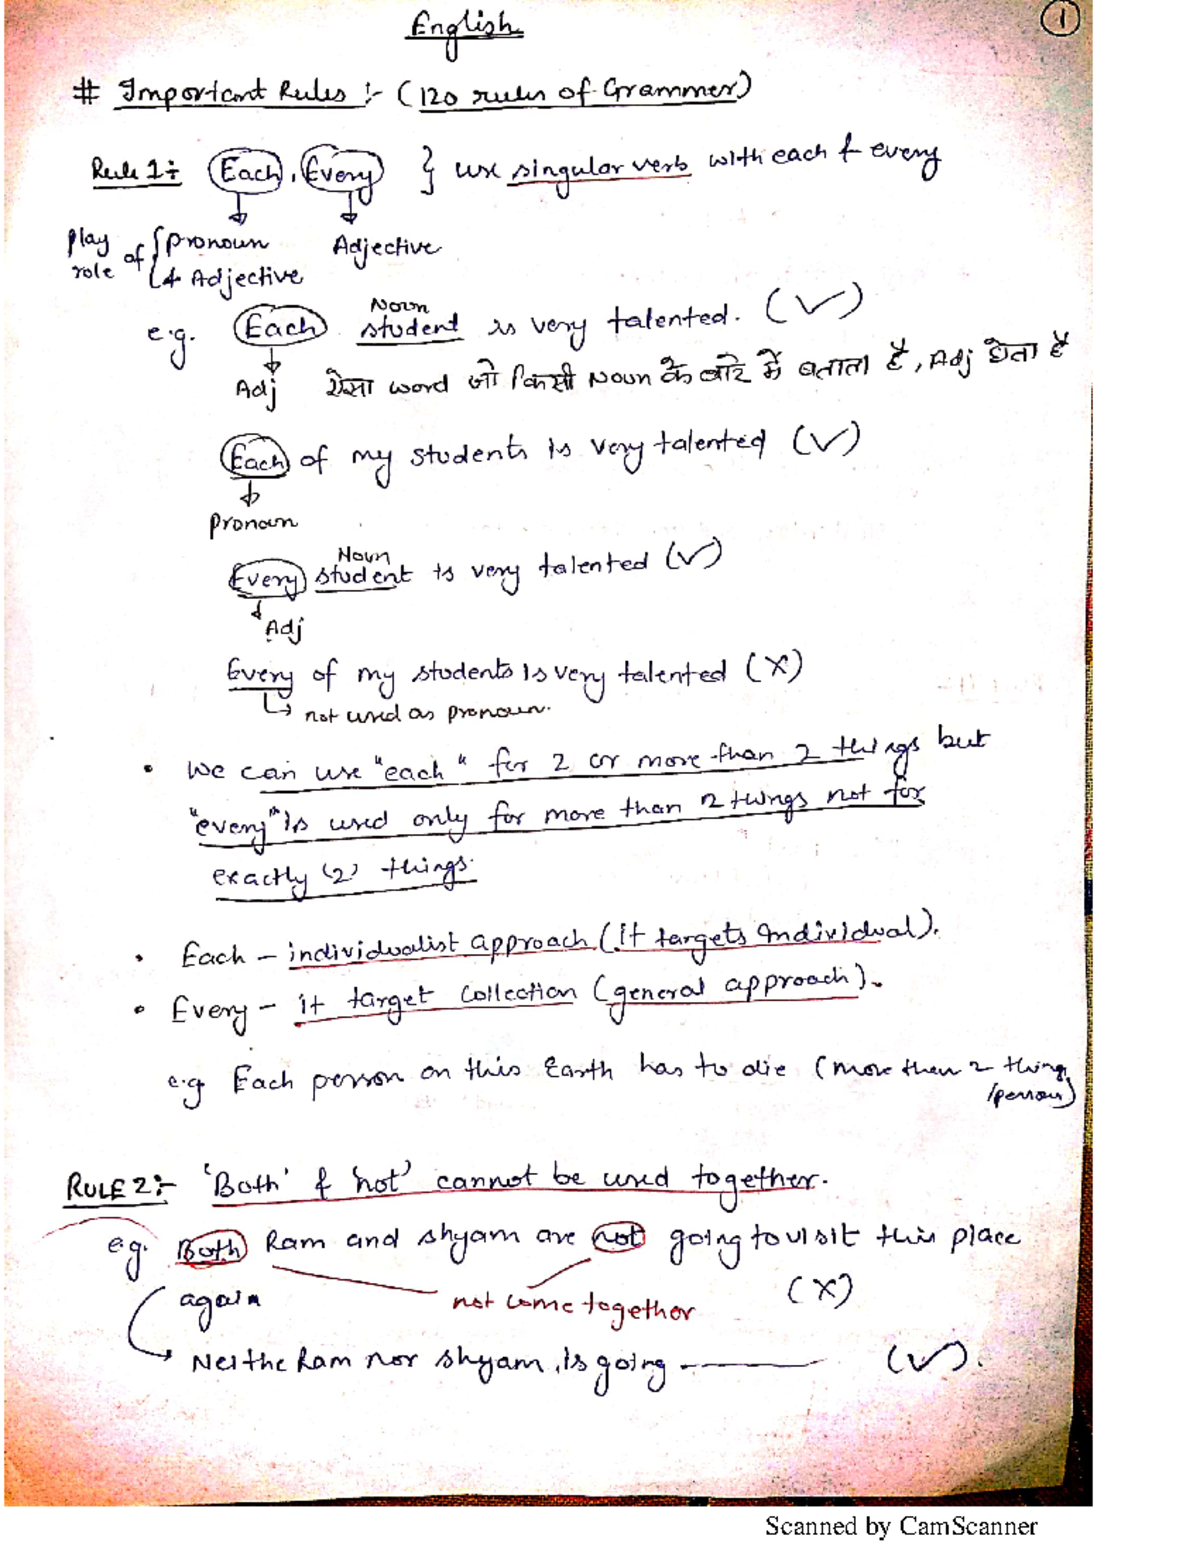 English
1
# Important Rules :- (120 rules of Grammer)
Rule 1:- Each, Every } use singular verb with each & every
play role of { pronoun & Adjective
Adjective
Noun
e.g. Each student is very talented. (✓)
Adj ऐसा word जो किसी Noun के बारे में बताता है, Adj होता है
Each of my students is very talented (✓)
Pronoun
Noun
Every student is very talented (✓)
Adj
Every of my students is very talented (X)
not used as pronoun.
• We can use "each" for 2 or more than 2 things but
"every" is used only for more than 2 things not for
exactly '2' things.
• Each - individualist approach (it targets individual).
• Every - it target collection (general approach).
e.g Each person on this Earth has to die (more then 2 thing
/person)
RULE 2:- 'Both' & 'not' cannot be used together.
e.g. Both Ram and shyam are not going to visit this place
again not come together (X)
Neithe Ram nor shyam is going ——— (✓).
Scanned by CamScanner